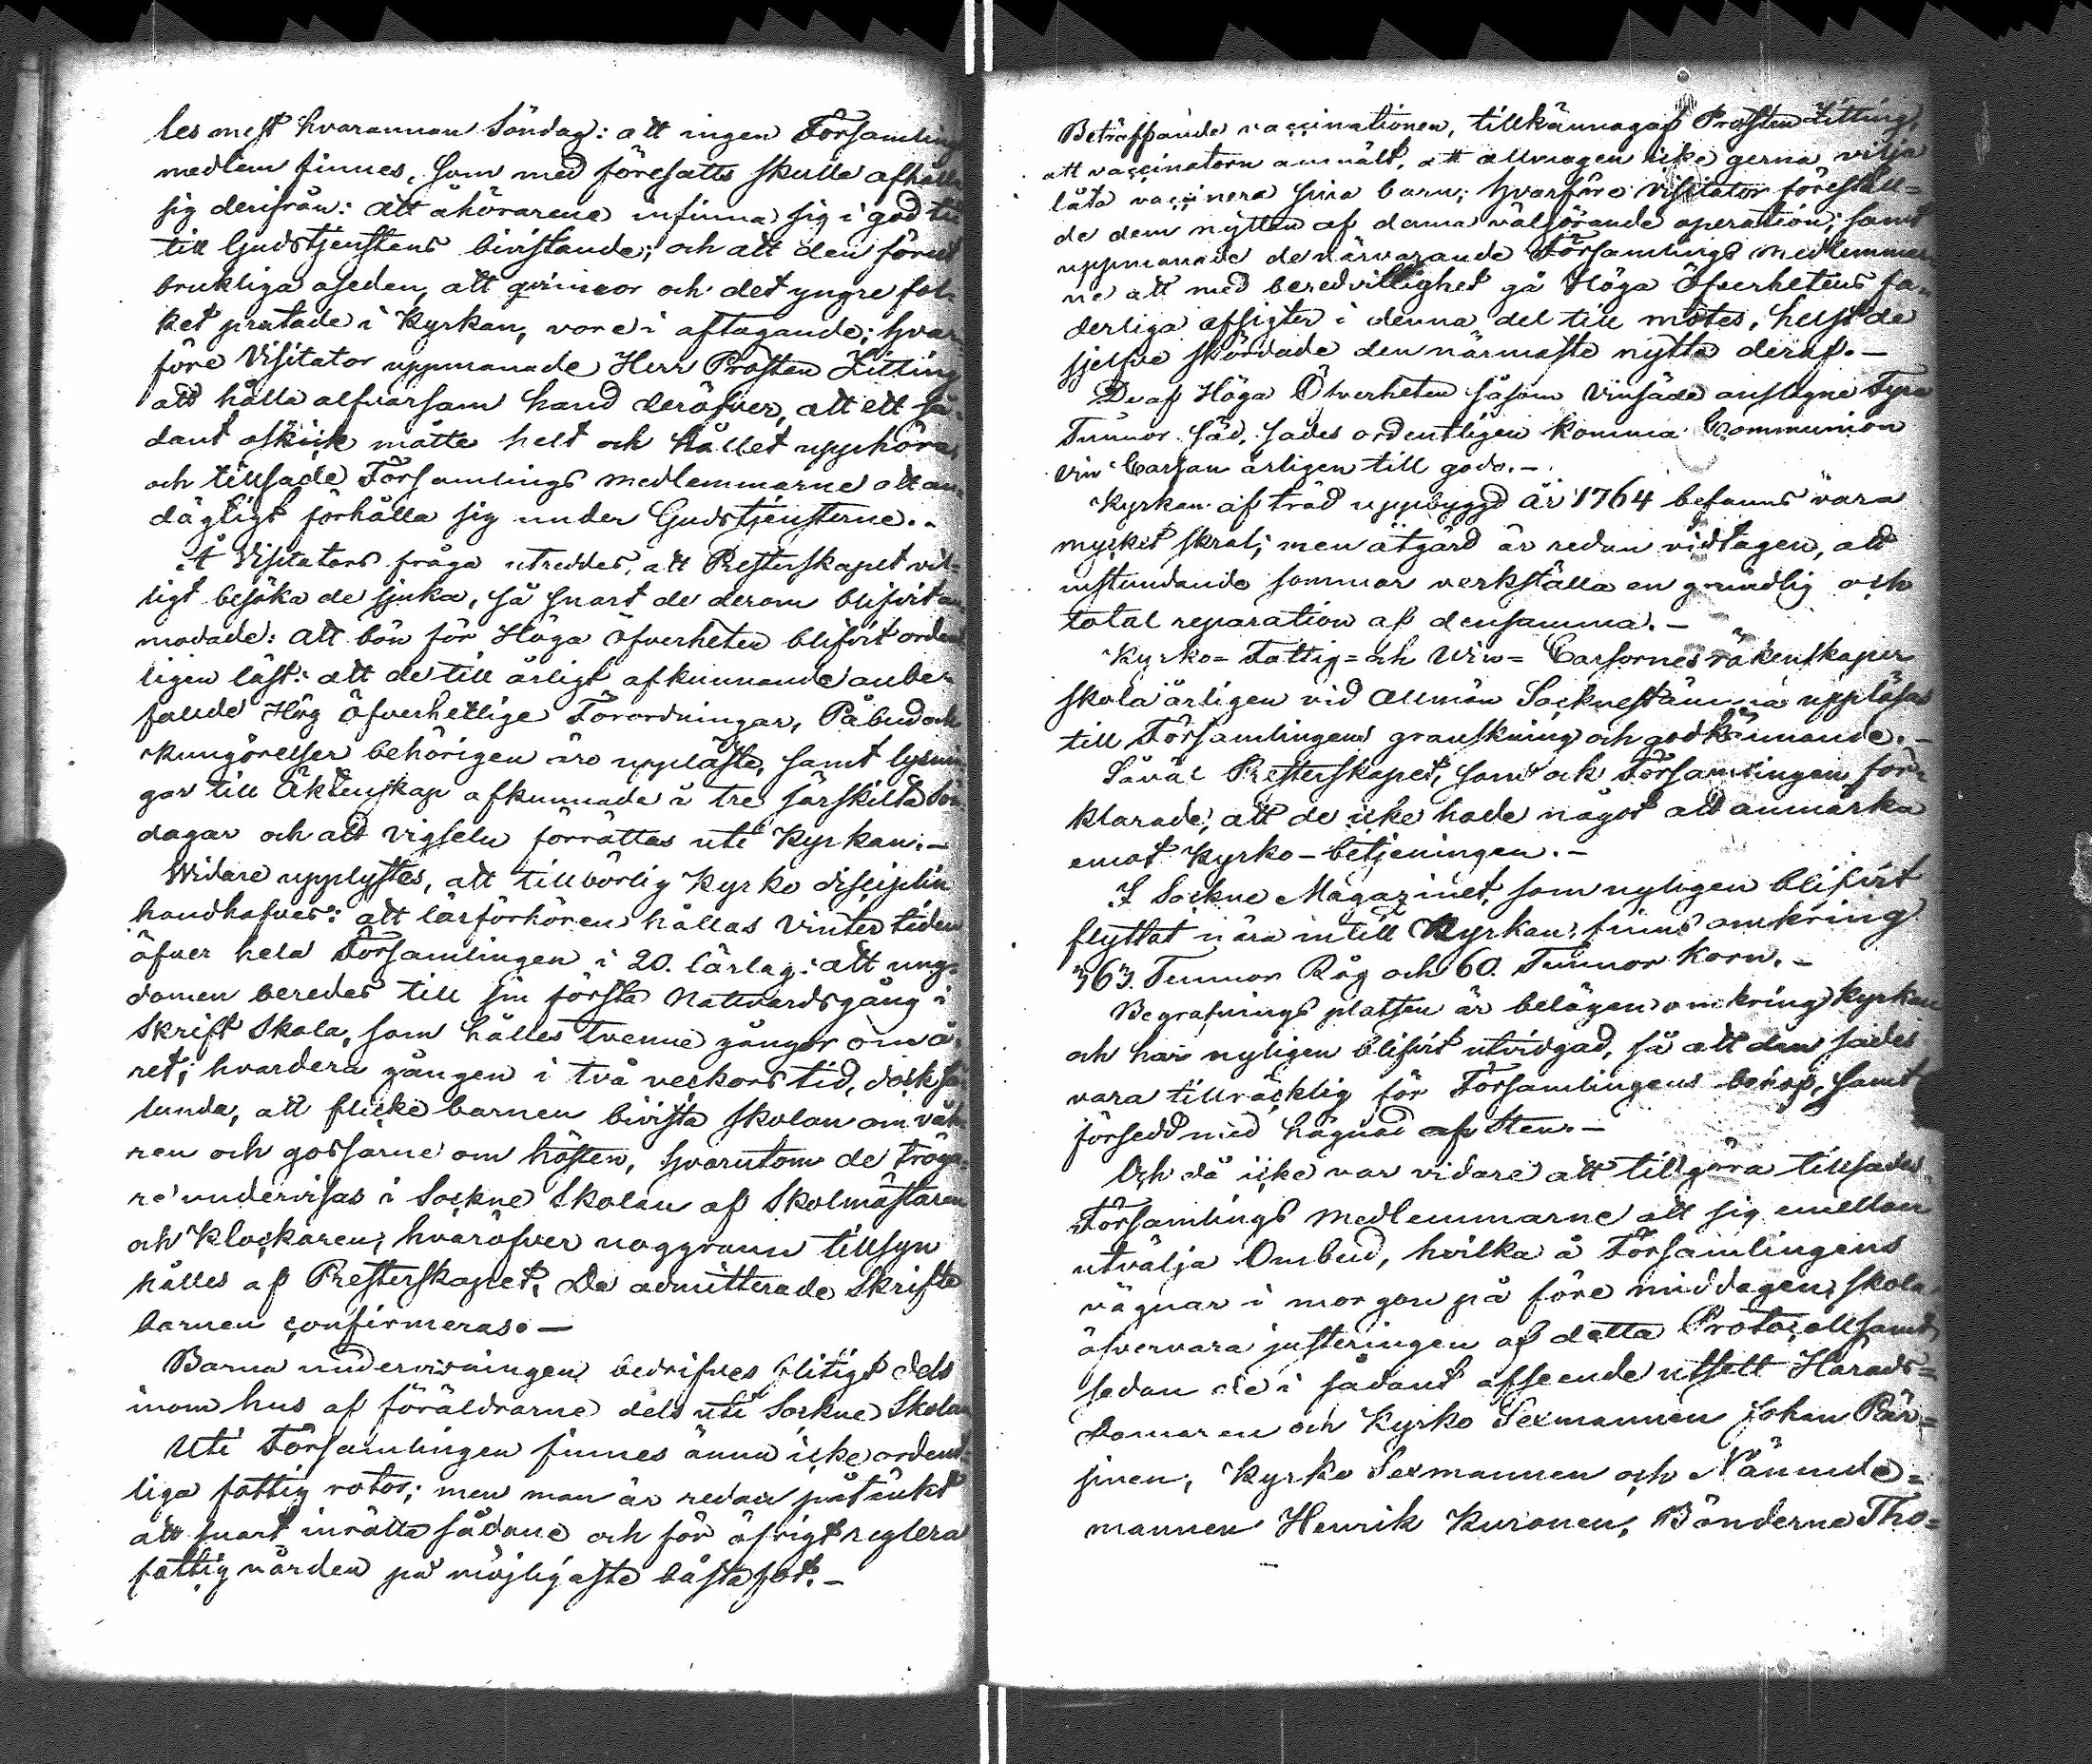 les mest hvarannan Söndag: att ingen Församling
medlem finnes, som med föresatts skulle afhålla
sig derifrån: att åhörarene infinna sig i god tid
till Gudstjenstens bivistande; och att den förut
brukliga oseden, att qvinnor och det yngre fol-
ket pratade i Kyrkan, vore i aftagande; hvar
före Visitator uppmanade Herr Prosten Zitting
att hålla alfvarsam hand deröfver, att ett så-
dant oskick måtte helt och hållet upphöra,
och tillsade Församlings medlemmarne att an-
dägtigt förhålla sig under Gudstjensterne.-
Å Visitators fråga utreddes, att Presterskapet vil-
ligt besöka de sjuka, så snart de derom blifvit an-
modade: att bön för Höga Öfverheten blifvit ordent
ligen läst: att de till årligt afkunnande anbe-
fallde Hög Öfverhetlige Förordningar, Påbud och
Kungörelser behörigen äro uppläste, samt lysnin
gar till Äktenskap afkunnade å tre särskilta Sön
dagar och att vigseln förrättas uti Kyrkan.-
Widare upplystes, att tillbörlig Kyrko disciplin
handhafves: att läsförhören hållas Vinter tiden
öfver hela Församlingen i 20. läslag: att ung-
domen beredes till sin första Nattvardsgång i
Skrift Skola, som hålles tvenne gånger om å-
ret; hvardera gången i två veckors tid, dock så
lunda, att flicke barnen bivista skolan om vå-
ren och gossarne om hösten, hvarutom de tröga-
re undervisas i Sockne Skolan af Skolmästaren
och Klockaren; hvaröfver noggrann tillsyn
hålles af Presterskapet. De admitterade Skrifte
barnen confirmeras.-
Barna undervisningen bedrifves flitigt dels
inom hus af föräldrarne dels uti Sockne Skolan
Uti Församlingen finnes ännu icke ordent-
liga fattig rotor; men man är redan påtänkt
att snart inrätta sådane och för öfrigt reglera
fattigvården på möjligaste bästa fot.-
Beträffande vaccinationen, tillkännagaf Prosten Zitting,
att vaccinatorn anmält, att allmogen icke gerna vilja
låta vaccinera sina barn; hvarföre Visitator föreställ-
de dem nyttan af denna välgörande operation; samt
uppmanade de närvarande Församlings medlemmar
ne att med beredvillighet gå Höga Öfverhetens fa-
derliga afsigter i denna del till mötes, helst de
sjelfve skördade den närmaste nytta deraf.-
De af Höga Öfverheten såsom Vinsäde anslagne Fyra
Tunnor säd, sades ordentligen komma Communion
vin Cassan årligen till godo.-
Kyrkan af träd uppbyggd År 1764 befanns vara
mycket skral; men åtgärd är redan vidtagen, att
instundande sommar verkställa en grundlig och
total reparation af densamma.-
Kyrko- Fattig- och Win- Cassornes räkenskaper
skola årligen vid allmän Socknestämma uppläsas
till Församlingens granskning och godkännande.-
Såväl Presterskapet, som ock Församlingen för-
klarade, att de icke hade något att anmärka
emot Kyrko-betjeningen.-
I Sockne Magazinet, som nyligen blifvit
flyttat nära intill Kyrkan, finns omkring
363. Tunnor Råg och 60. Tunnor Korn.-
Begrafnings platsen är belägen omkring Kyrkan
och har nyligen blifvit utvidgad, så att den sades
vara tillräcklig för Församlingens behof, samt
försedd med hägnad af Sten.-
Och då icke var vidare att tillgöra tillsades
Församlings medlemmarne att sig emellan
utvälja Ombud, hvilka å Församlingens
vägnar i morgon på före middagen skola
öfvervara justeringen af detta Protocoll samt
sedan de i sådant afseende utsett Härads-
Domaren och Kyrko Sexmannen Johan Pär-
sinen, Kyrko Sexmannen och Nämnde-
mannen Henrik Kuronen, Bönderne Tho-